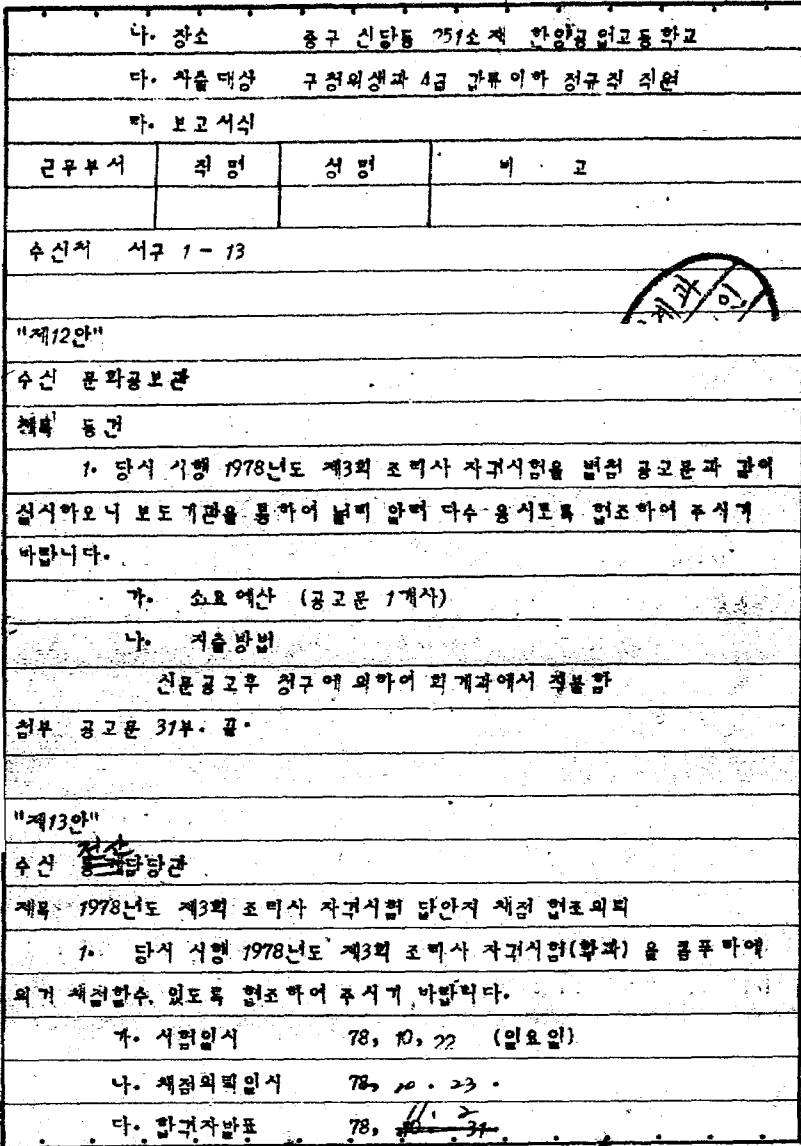 나. 장소 중구 신당동 251소재 한양공업고등학교
다. 차출대상 구청위생과 4급 갑류이하 정규직 직원
라. 보고서식
근무부서 직명 성명 비고
수신처 서구 1-13
계과 인
"제12안"
수신 문화공보관
제목 동건
1. 당시 시행 1978년도 제3회 조리사 자격시험을 별첨 공고문과 같이
실시하오니 보도기관을 통하여 널리 알려 다수 응시토록 협조하여 주시기
바랍니다.
가. 소요예산 (공고문 1개사)
나. 지출방법
신문공고후 청구에 의하여 회계과에서 직불함
첨부 공고문 31부. 끝.
"제13안"
전산
수신 담당관
제목 1978년도 제3회 조리사 자격시험 답안지 채점 협조의뢰
1. 당시 시행 1978년도 제3회 조리사 자격시험(학과)을 콤퓨타에
의거 채점할수 있도록 협조하여 주시기 바랍니다.
가. 시험일시 78, 10, 22 (일요일)
나. 채점의뢰일시 78, 10. 23.
11. 2
다. 합격자발표 78, 10 31